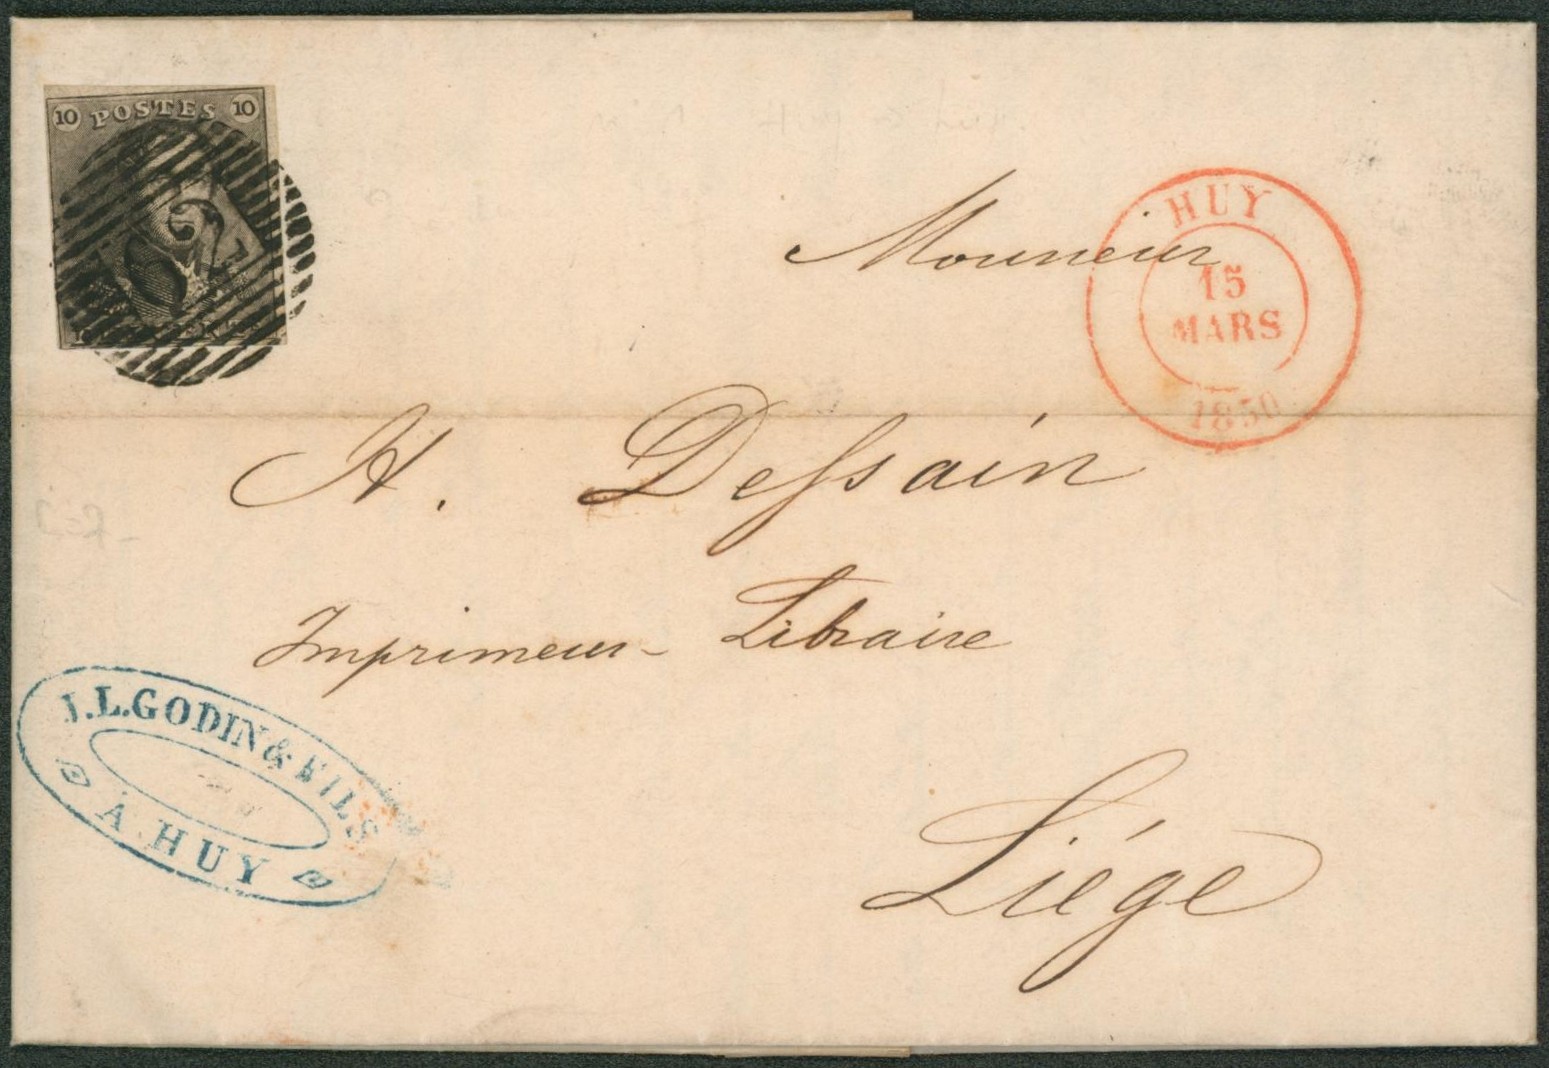 10 POSTES 10
HUY
15
MARS
1850
Monsieur
H. Dessain
Imprimeur-Libraire
Liége
J.L.GODIN & FILS
À HUY